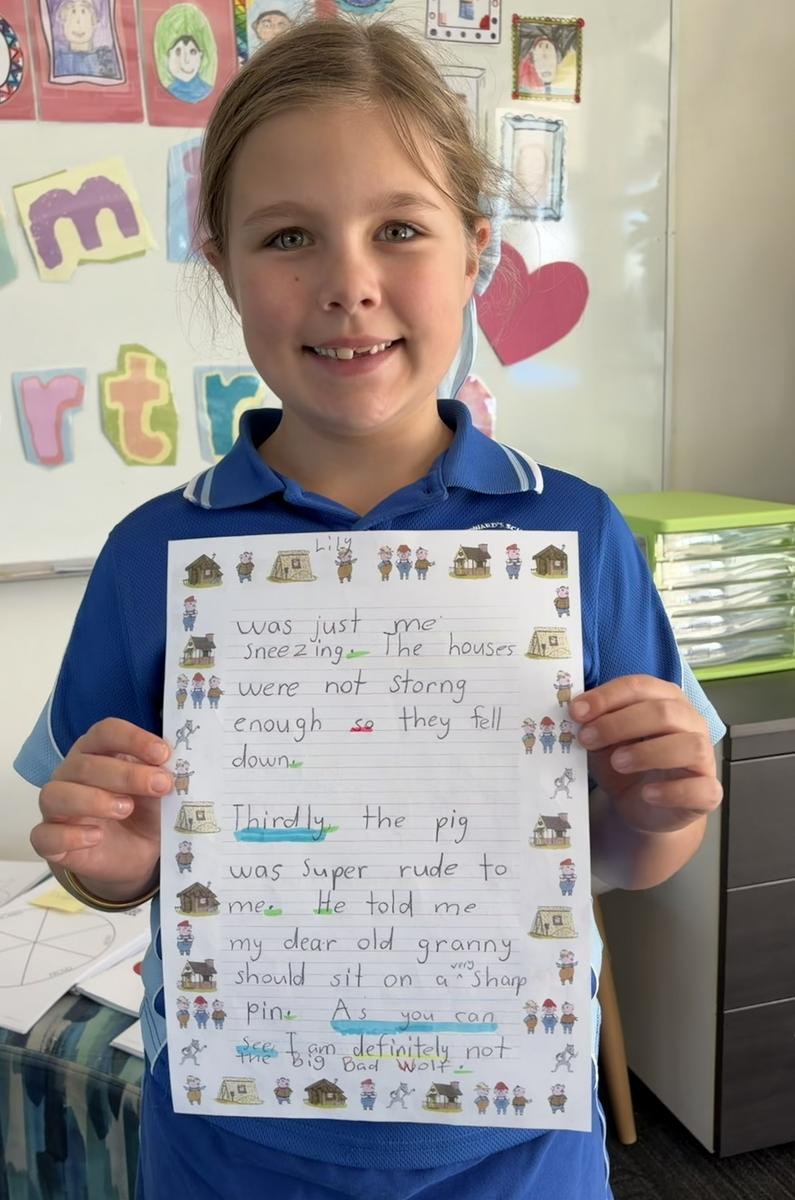 m i
r t r
WARD'S SCH
Lily
was just me
sneezing. The houses
were not storng
enough so they fell
down.
Thirdly, the pig
was super rude to
me. He told me
my dear old granny
should sit on a very sharp
pin. As you can
see, I am definitely not
the big Bad Wolf.